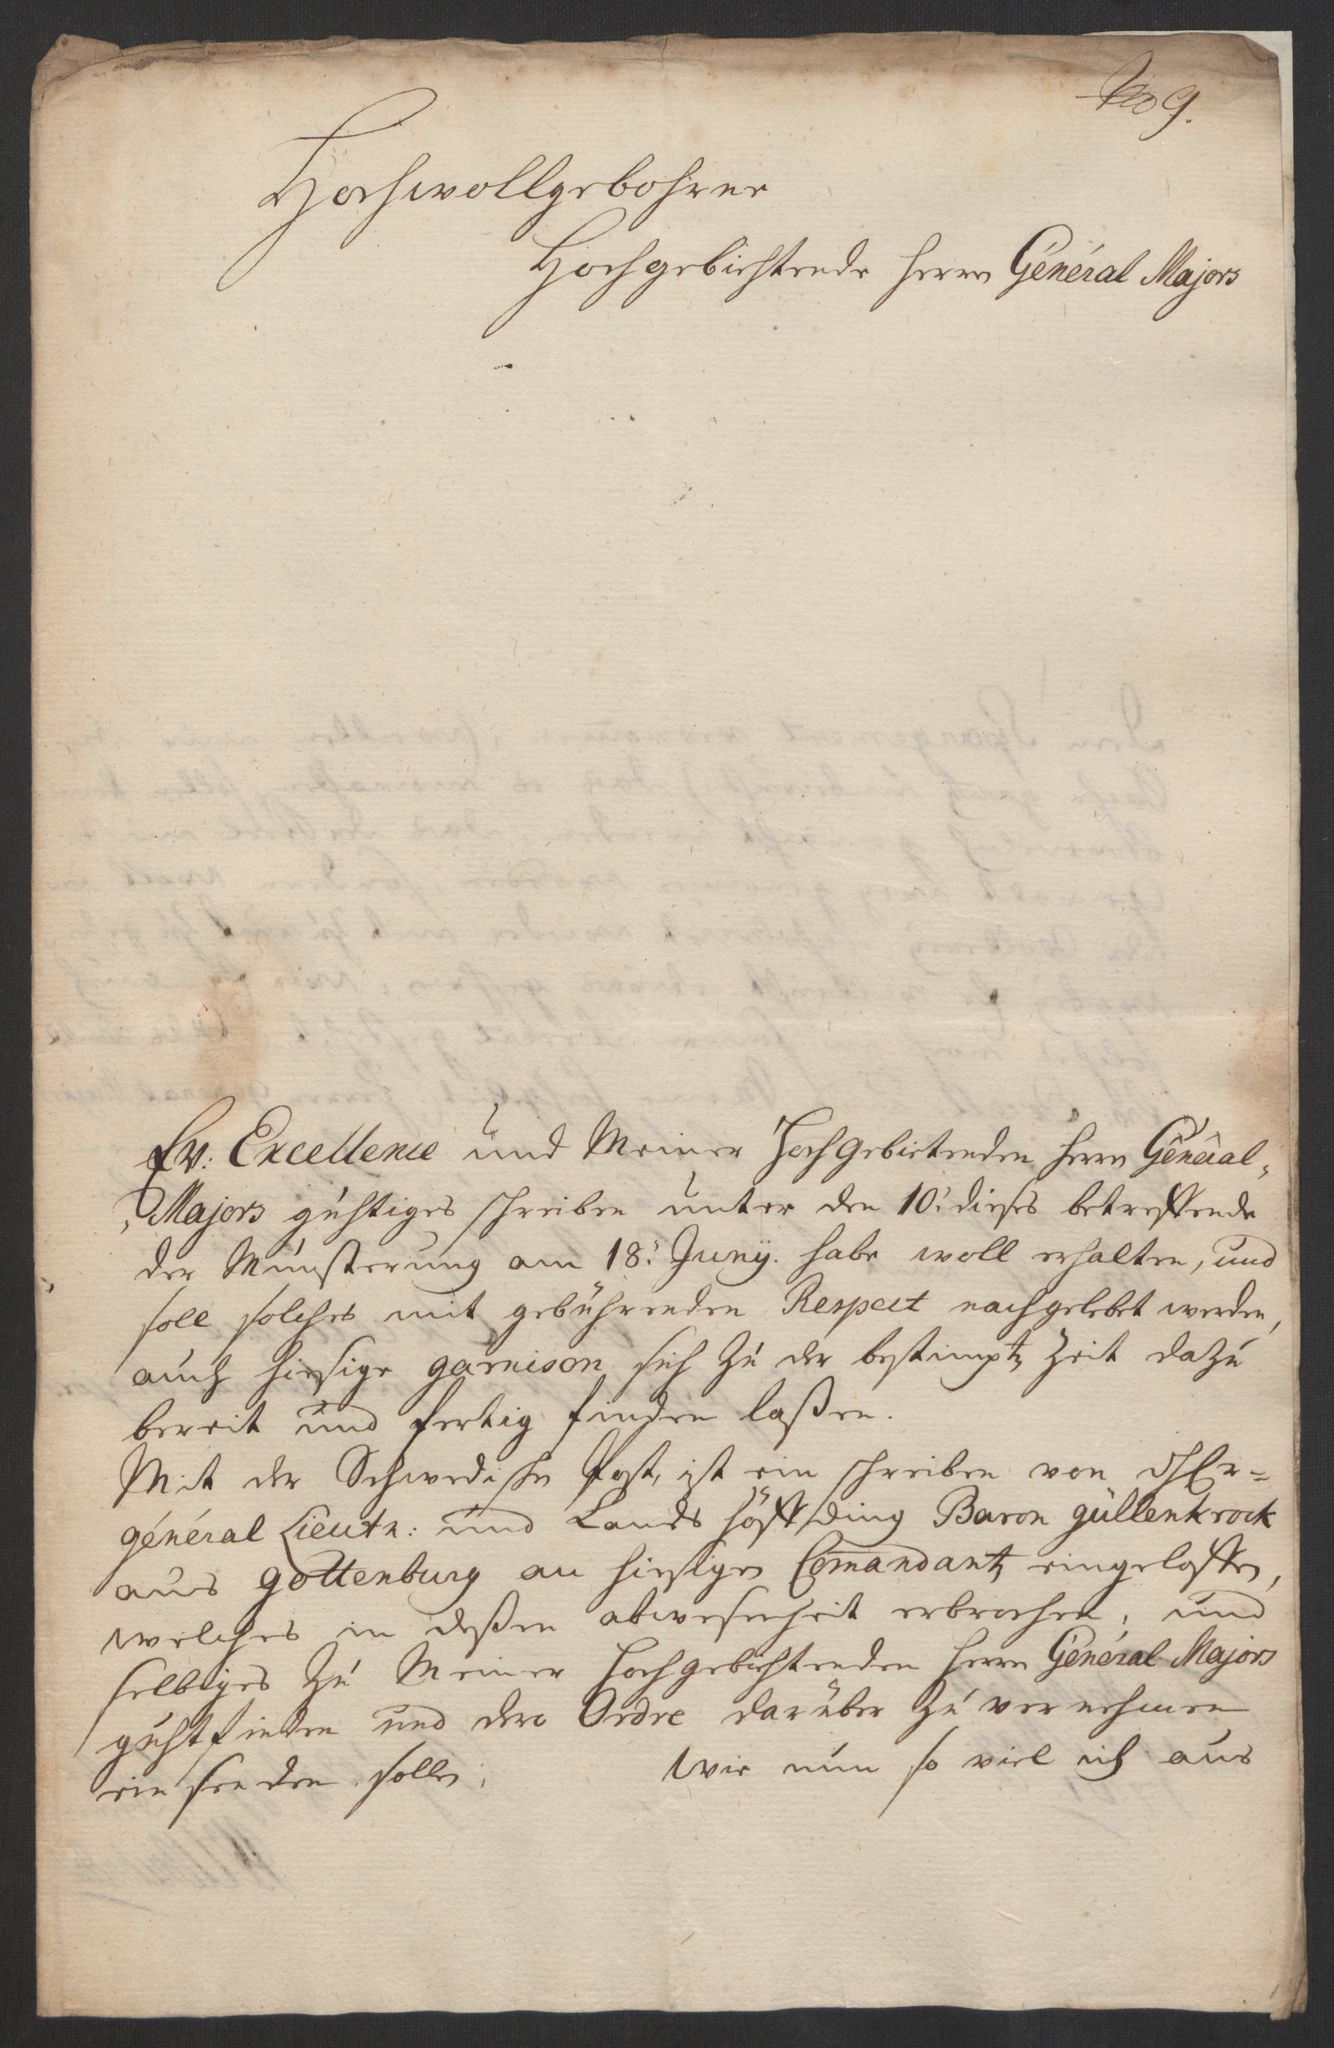 No 9.
Hochwollgebohrner
Hochgebiehtende Herrn General Majors
Ew: Excellence und Meiner Hochgebietenden Herrn General-
Majors gühtiges schreiben unter den 10: dieses betreffende
der Münsterung am 18: Junÿ. habe woll erhalten, und
soll solches mit gebührenden Respect nachgelebet werden,
auch hiesige garnison sich zu der bestimptz Zeit dazu
bereit und fertig finden laßen.
Mit der Schwedische Post, ist ein schreiben von
général Lieutn: und Landshöffding Baron güllenkrock
aus gottenburg an hiesigen Comandantz eingeloffen,
welches in deßen abwesenheit erbrochen, und
selbiges zu Meiner Hochgebiehtenden Herrn General Majors
guhtfinden und dero Ordre darüber zu vernehmen
ein senden sollen,
Wie nun so viel ich aus